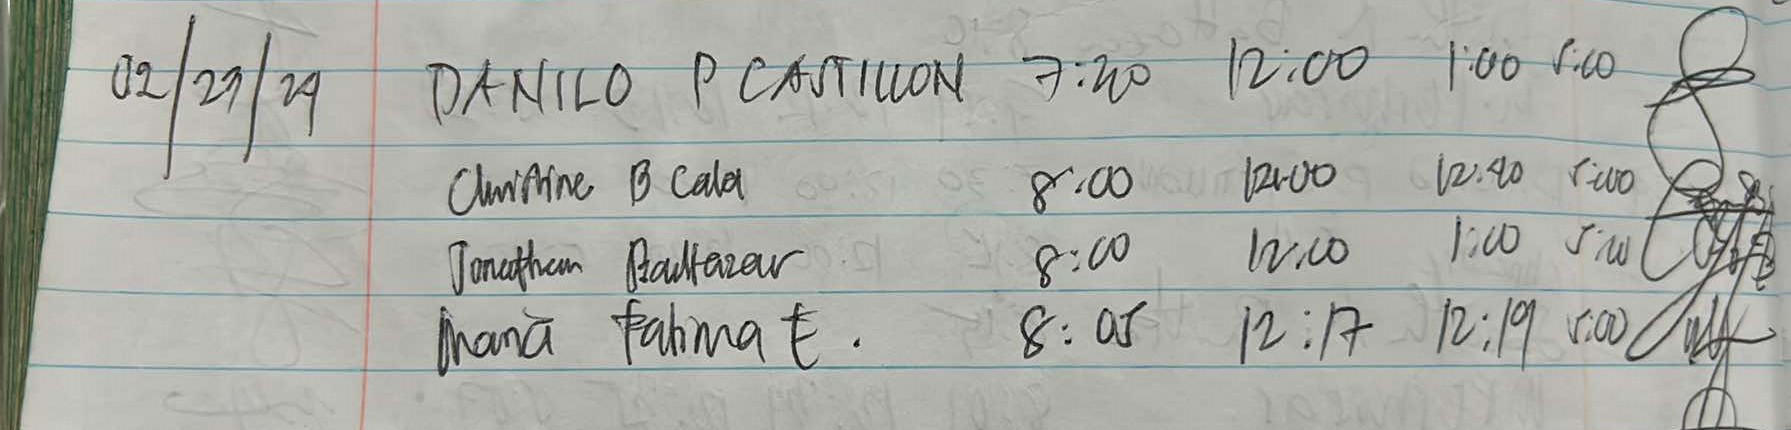 02/27/24 DANILO P CASTILLON 7:20 12:00 1:00 5:00
Christine B Cala 8:00 12:00 12:40 5:00
Jonathan Baltazar 8:00 12:00 1:00 5:00
Maria Fatima E. 8:05 12:17 12:19 5:00